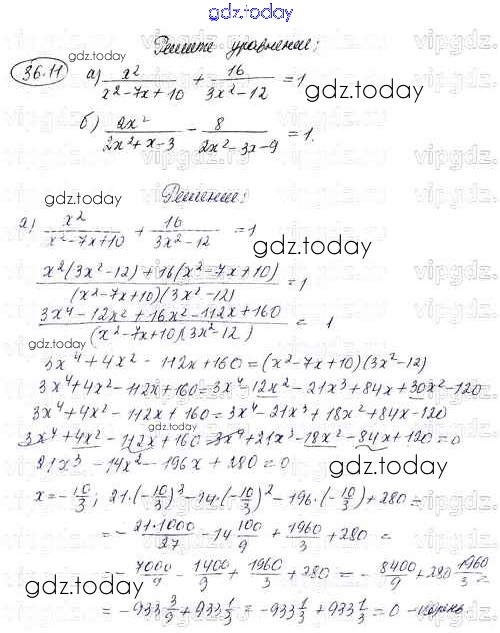 gdz.today
Решите уравнение:
36.11 а) x²/(x²-7x+10) + 16/(3x²-12) = 1
б) 2x²/(2x²+x-3) - 8/(2x²-3x-9) = 1.
Решение:
а) x²/(x²-7x+10) + 16/(3x²-12) = 1
(x²(3x²-12)+16(x²-7x+10))/((x²-7x+10)(3x²-12)) = 1
(3x⁴-12x²+16x²-112x+160)/((x²-7x+10)(3x²-12)) = 1
3x⁴+4x²-112x+160=(x²-7x+10)(3x²-12)
3x⁴+4x²-112x+160=3x⁴-12x²-21x³+84x+30x²-120
3x⁴+4x²-112x+160=3x⁴-21x³+18x²+84x-120
3x⁴+4x²-112x+160-3x⁴+21x³-18x²-84x+120=0
21x³-14x²-196x+280=0
x=-10/3; 21·(-10/3)³-14·(-10/3)²-196·(-10/3)+280=
=-21·1000/27-14 100/9+1960/3+280=
=-7000/9-1400/9+1960/3+280=-8400/9+280 1960/3=
=-933 3/9+933 1/3=-933 1/3+933 1/3=0 - корень